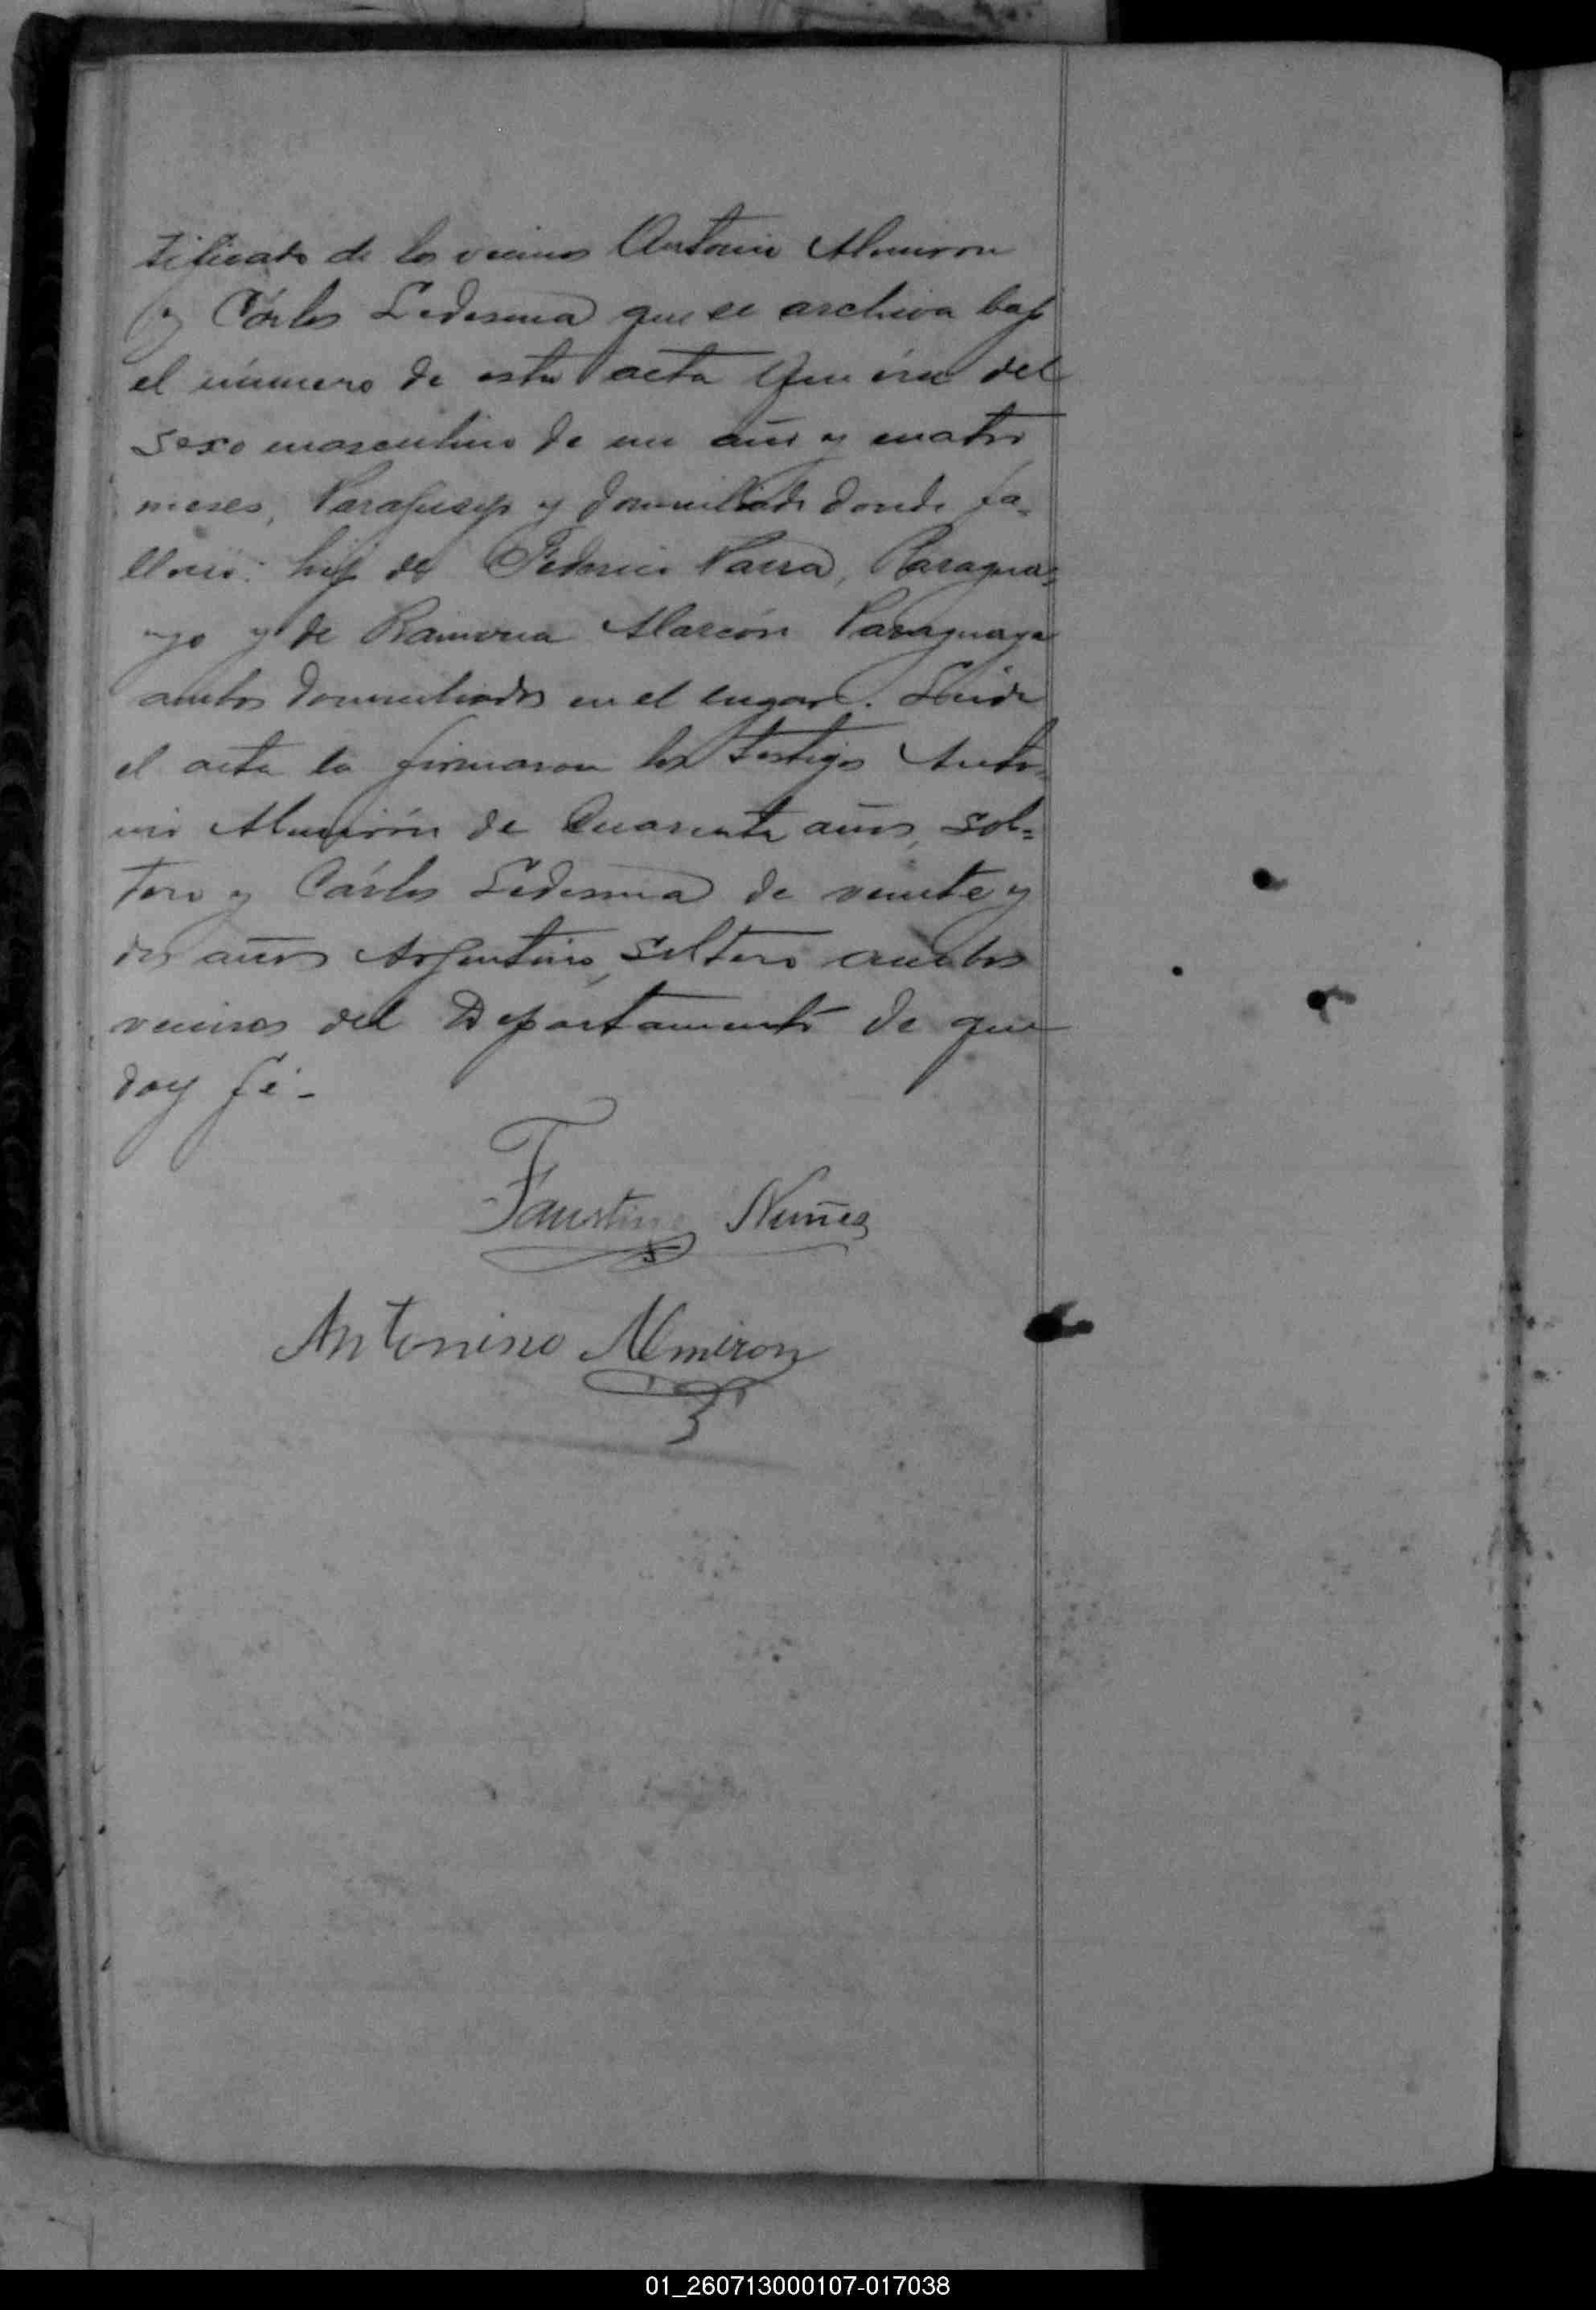 tificado de los vecinos Antonio Almiron
y Cárlos Ledesma que se archiva bajo
el número de esta acta Que éra del
sexo masculino de un año y cuatro
meses, Paraguayo y domiciliado donde fa-
lleció: hijo de Federico Parra, Paragua-
yo y de Ramona Alarcón Paraguaya
ambos domiciliados en el lugar. Leida
el acta la firmaron los testigos Anto-
nio Almirón de Cuarenta años, sol=
tero y Cárlos Ledesma de veinte y
dos años Argentino, soltero ambos
vecinos del Departamento de que
doy fé-
Faustino Nuñes
Antonino Almiron
01_260713000107-017038